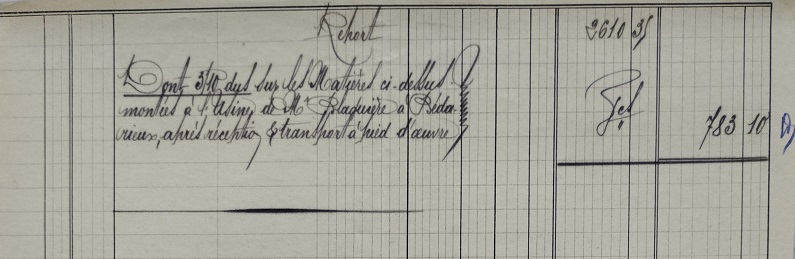 Report 2610 35
Dont 3/10 dus sur les Matières ci-dessus
montées à l'Usine de Mr Blaquière à Béda
rieux, après réception & transport à pied d'œuvre 783 10